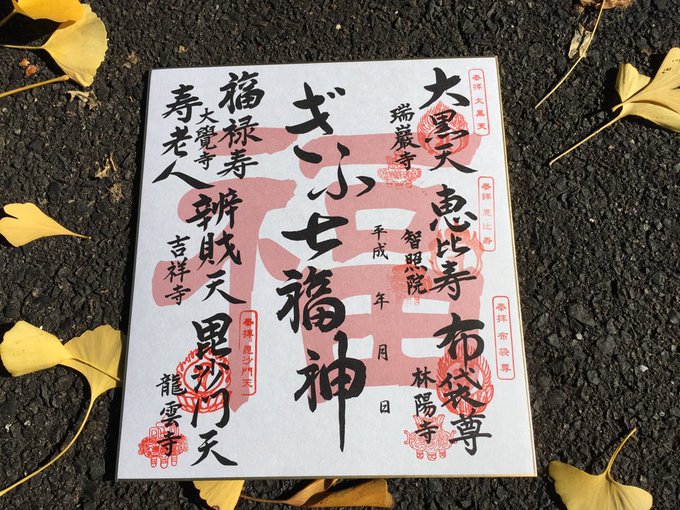 奉拝 大黒天
大黒天
瑞巌寺
奉拝 恵比寿
恵比寿
智照院
奉拝 布袋尊
布袋尊
林陽寺
福
ぎふ七福神
平成 年 月 日
福禄寿
大覺寺
寿老人
辨財天
吉祥寺
奉拝 毘沙門天
毘沙門天
龍雲寺